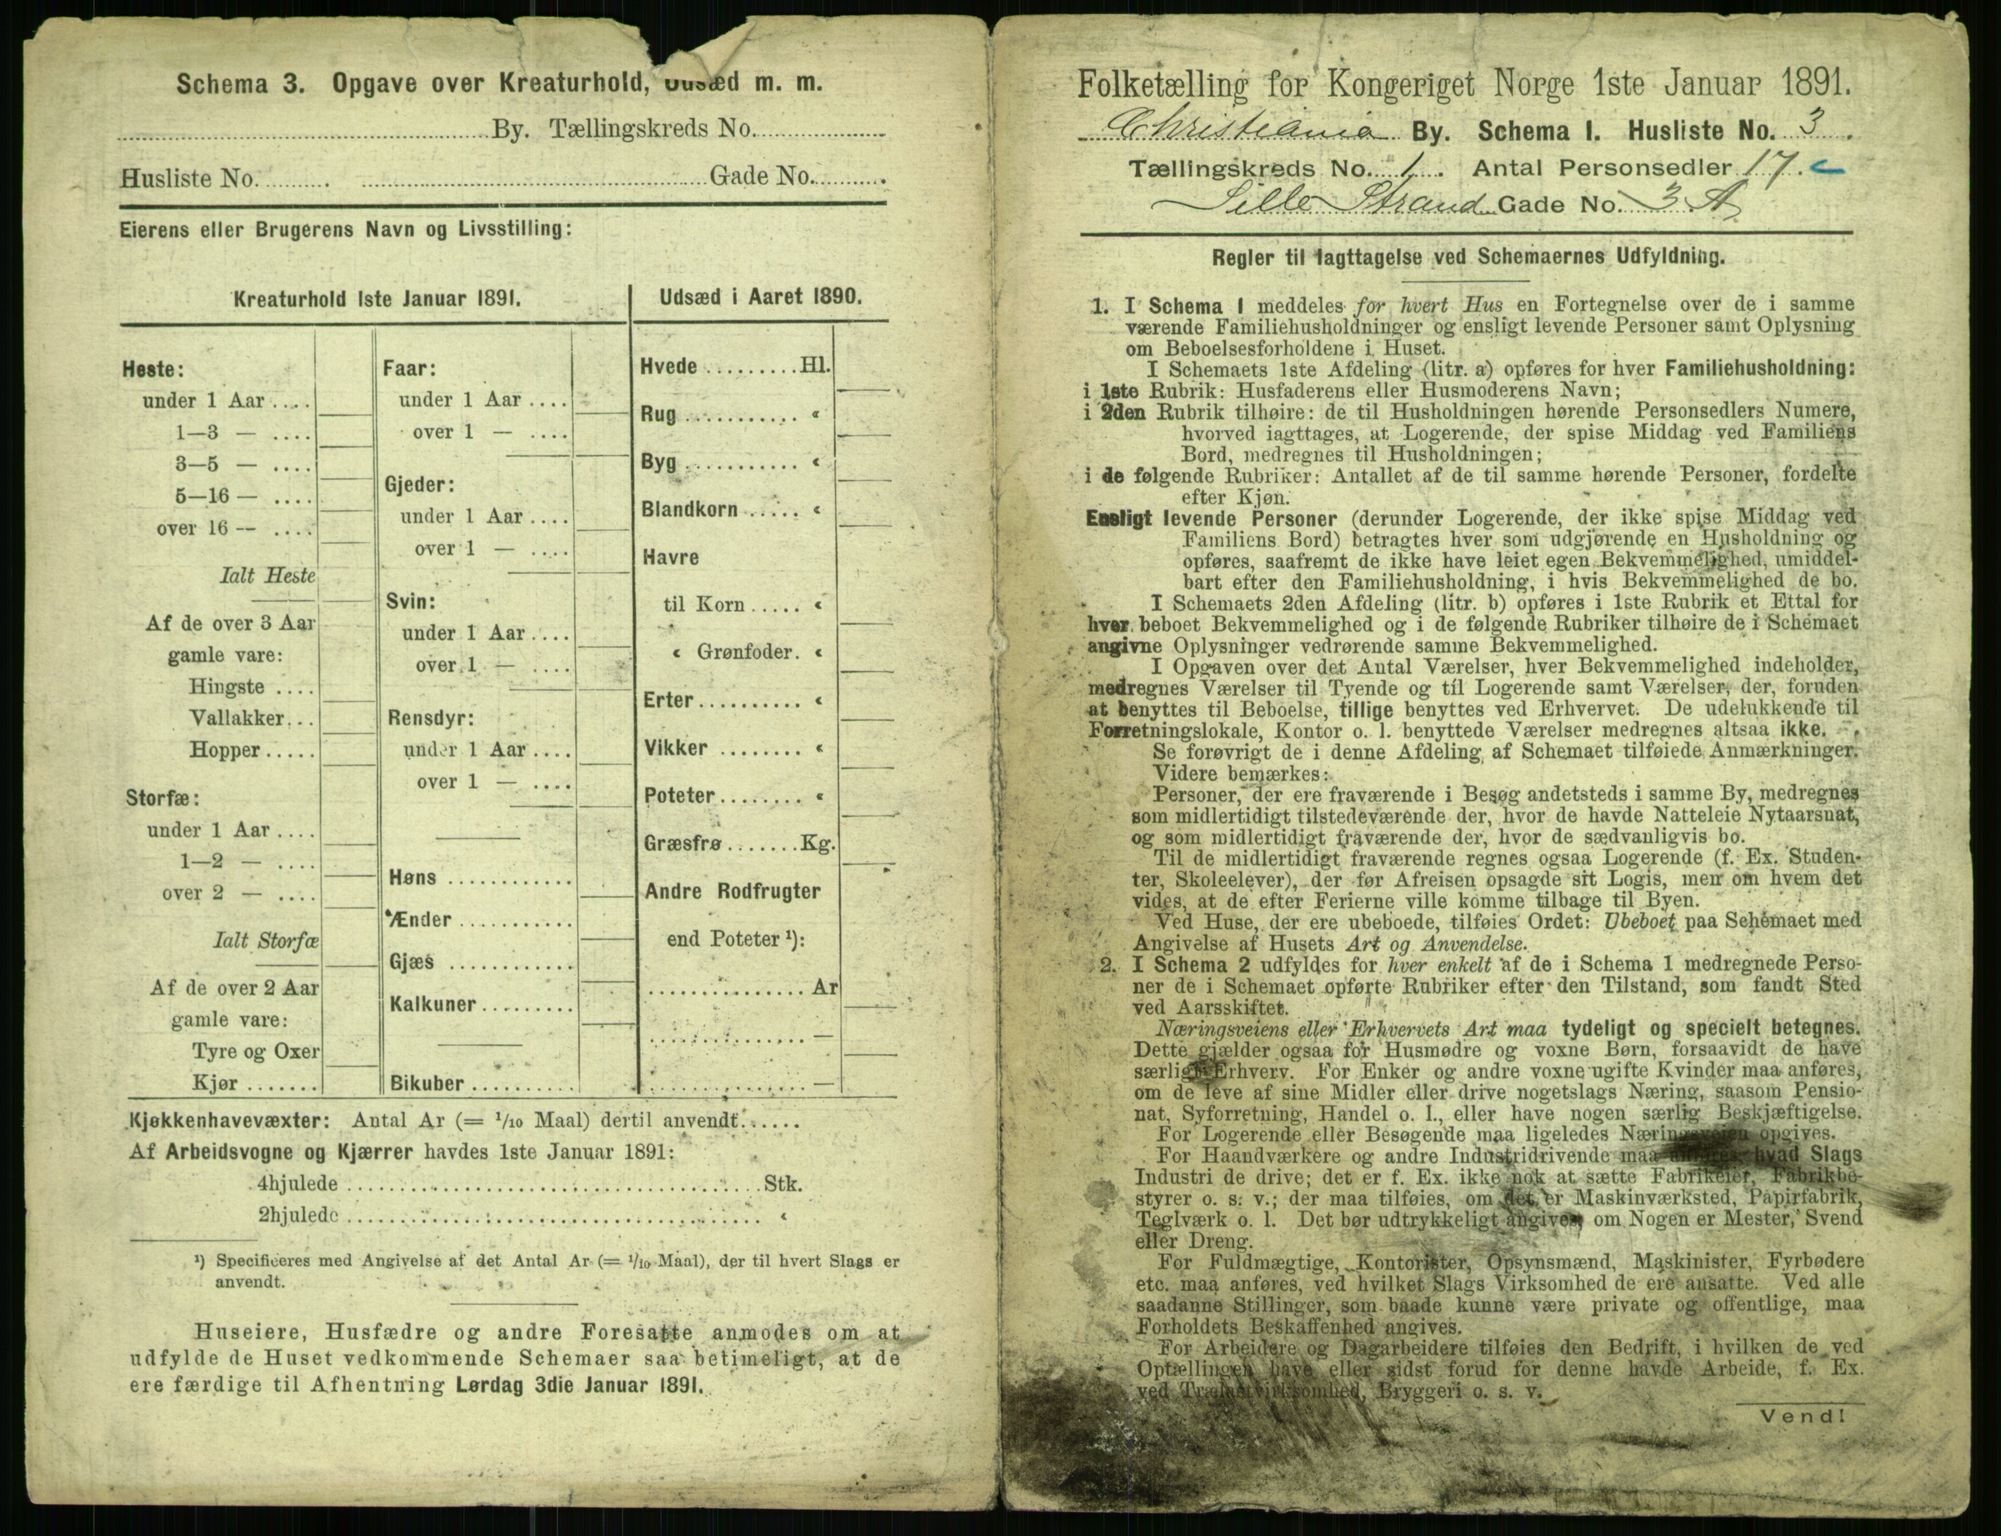 Schema 3. Opgave over Kreaturhold, Udsæd m. m.
By. Tællingskreds No.
Husliste No. Gade No.
Eierens eller Brugerens Navn og Livsstilling:
Kreaturhold 1ste Januar 1891.
Heste:
under 1 Aar ....
1—3 — ....
3—5 — ....
5—16 — ....
over 16 — ....
Ialt Heste
Af de over 3 Aar
gamle vare:
Hingste ....
Vallakker...
Hopper .....
Storfæ:
under 1 Aar ....
1—2 — ....
over 2 — ....
Ialt Storfæ
Af de over 2 Aar
gamle vare:
Tyre og Oxer
Kjør .......
Faar:
under 1 Aar ....
over 1 — ....
Gjeder:
under 1 Aar ....
over 1 — ....
Svin:
under 1 Aar ....
over 1 — ....
Rensdyr:
under 1 Aar ....
over 1 — ....
Høns ............
Ænder ...........
Gjæs ............
Kalkuner .........
Bikuber ..........
Udsæd i Aaret 1890.
Hvede ......... Hl.
Rug ........... «
Byg ........... «
Blandkorn ..... «
Havre
til Korn ..... «
« Grønfoder. «
Erter .......... «
Vikker ........ «
Poteter ........ «
Græsfrø ....... Kg.
Andre Rodfrugter
end Poteter ¹):
............... Ar
............... —
............... —
Kjøkkenhavevæxter: Antal Ar (= 1/10 Maal) dertil anvendt ......
Af Arbeidsvogne og Kjærrer havdes 1ste Januar 1891:
4hjulede ........................................ Stk.
2hjulede ........................................ «
¹) Specificeres med Angivelse af det Antal Ar (= 1/10 Maal), der til hvert Slags er
anvendt.
Huseiere, Husfædre og andre Foresatte anmodes om at
udfylde de Huset vedkommende Schemaer saa betimeligt, at de
ere færdige til Afhentning Lørdag 3die Januar 1891.
Folketælling for Kongeriget Norge 1ste Januar 1891.
Christiania By. Schema 1. Husliste No. 3.
Tællingskreds No. 1. Antal Personsedler 17.
Lille Strand Gade No. 3 A
Regler til Iagttagelse ved Schemaernes Udfyldning.
1. I Schema 1 meddeles for hvert Hus en Fortegnelse over de i samme
værende Familiehusholdninger og ensligt levende Personer samt Oplysning
om Beboelsesforholdene i Huset.
I Schemaets 1ste Afdeling (litr. a) opføres for hver Familiehusholdning:
i 1ste Rubrik: Husfaderens eller Husmoderens Navn;
i 2den Rubrik tilhøire: de til Husholdningen hørende Personsedlers Numere,
hvorved iagttages, at Logerende, der spise Middag ved Familiens
Bord, medregnes til Husholdningen;
i de følgende Rubriker: Antallet af de til samme hørende Personer, fordelte
efter Kjøn.
Ensligt levende Personer (derunder Logerende, der ikke spise Middag ved
Familiens Bord) betragtes hver som udgjørende en Husholdning og
opføres, saafremt de ikke have leiet egen Bekvemmelighed, umiddel-
bart efter den Familiehusholdning, i hvis Bekvemmelighed de bo.
I Schemaets 2den Afdeling (litr. b) opføres i 1ste Rubrik et Ettal for
hver beboet Bekvemmelighed og i de følgende Rubriker tilhøire de i Schemaet
angivne Oplysninger vedrørende samme Bekvemmelighed.
I Opgaven over det Antal Værelser, hver Bekvemmelighed indeholder,
medregnes Værelser til Tyende og til Logerende samt Værelser, der, foruden
at benyttes til Beboelse, tillige benyttes ved Erhvervet. De udelukkende til
Forretningslokale, Kontor o. l. benyttede Værelser medregnes altsaa ikke.
Se forøvrigt de i denne Afdeling af Schemaet tilføiede Anmærkninger.
Videre bemærkes:
Personer, der ere fraværende i Besøg andetsteds i samme By, medregnes
som midlertidigt tilstedeværende der, hvor de havde Natteleie Nytaarsnat,
og som midlertidigt fraværende der, hvor de sædvanligvis bo.
Til de midlertidigt fraværende regnes ogsaa Logerende (f. Ex. Studen-
ter, Skoleelever), der før Afreisen opsagde sit Logis, men om hvem det
vides, at de efter Ferierne ville komme tilbage til Byen.
Ved Huse, der ere ubeboede, tilføies Ordet: Ubeboet paa Schemaet med
Angivelse af Husets Art og Anvendelse.
2. I Schema 2 udfyldes for hver enkelt af de i Schema 1 medregnede Perso-
ner de i Schemaet opførte Rubriker efter den Tilstand, som fandt Sted
ved Aarsskiftet.
Næringsveiens eller Erhvervets Art maa tydeligt og specielt betegnes.
Dette gjælder ogsaa for Husmødre og voxne Børn, forsaavidt de have
særligt Erhverv. For Enker og andre voxne ugifte Kvinder maa anføres,
om de leve af sine Midler eller drive nogetslags Næring, saasom Pensio-
nat, Syforretning, Handel o. l., eller have nogen særlig Beskjæftigelse.
For Logerende eller Besøgende maa ligeledes Næringsveien opgives.
For Haandværkere og andre Industridrivende maa anføres, hvad Slags
Industri de drive; det er f. Ex. ikke nok at sætte Fabrikeier, Fabrikbe-
styrer o. s. v.; der maa tilføies, om det er Maskinværksted, Papirfabrik,
Teglværk o. l. Det bør udtrykkeligt angives, om Nogen er Mester, Svend
eller Dreng.
For Fuldmægtige, Kontorister, Opsynsmænd, Maskinister, Fyrbødere
etc. maa anføres, ved hvilket Slags Virksomhed de ere ansatte. Ved alle
saadanne Stillinger, som baade kunne være private og offentlige, maa
Forholdets Beskaffenhed angives.
For Arbeidere og Dagarbeidere tilføies den Bedrift, i hvilken de ved
Optællingen have eller sidst forud for denne havde Arbeide, f. Ex.
ved Trælastvirksomhed, Bryggeri o. s. v.
Vend!